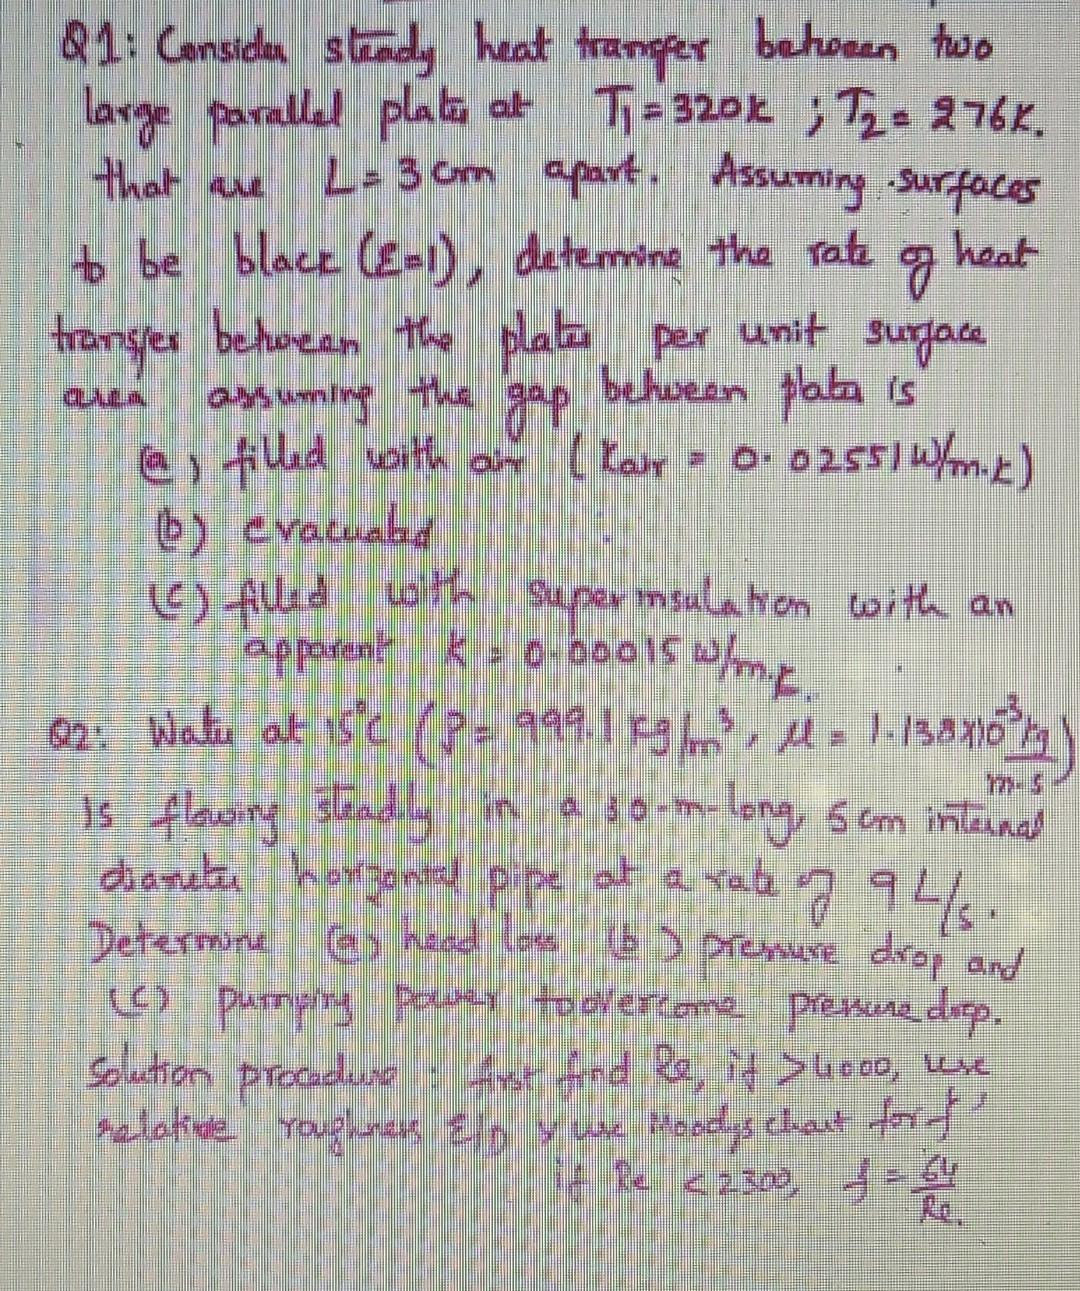 Q1: Consider steady heat transfer between two
large parallel plates at T₁ = 320K ; T₂ = 276K.
that are L = 3 cm apart. Assuming surfaces
to be black (ε=1), determine the rate of heat
transfer between the plates per unit surface
area assuming the gap between plates is
(a) filled with air (Kair = 0.02551 W/m.k)
(b) evacuated
(c) filled with superinsulation with an
apparent k = 0.00015 W/m.k.
Q2: Water at 15°C (ρ = 999.1 kg/m³, μ = 1.138×10⁻³ kg/m-s)
is flowing steadily in a 30-m-long, 5 cm internal
diameter horizontal pipe at a rate of 9 L/s.
Determine (a) head loss (b) pressure drop and
(c) pumping power to overcome pressure drop.
Solution procedure : first find Re, if >4000, use
relative roughness ε/D & use Moodys chart for 'f'
if Re < 2300, f = 64/Re.